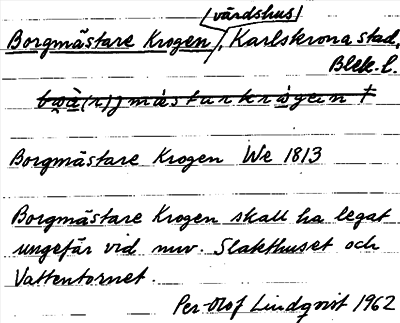 (värdshus)
Borgmästare Krogen, Karlskrona stad,
Blek. l.
Borgmästare Krogen We 1813
Borgmästare Krogen skall ha legat
ungefär vid nuv. Slakthuset och
Vattentornet.
Per-Olof Lindqvist 1962